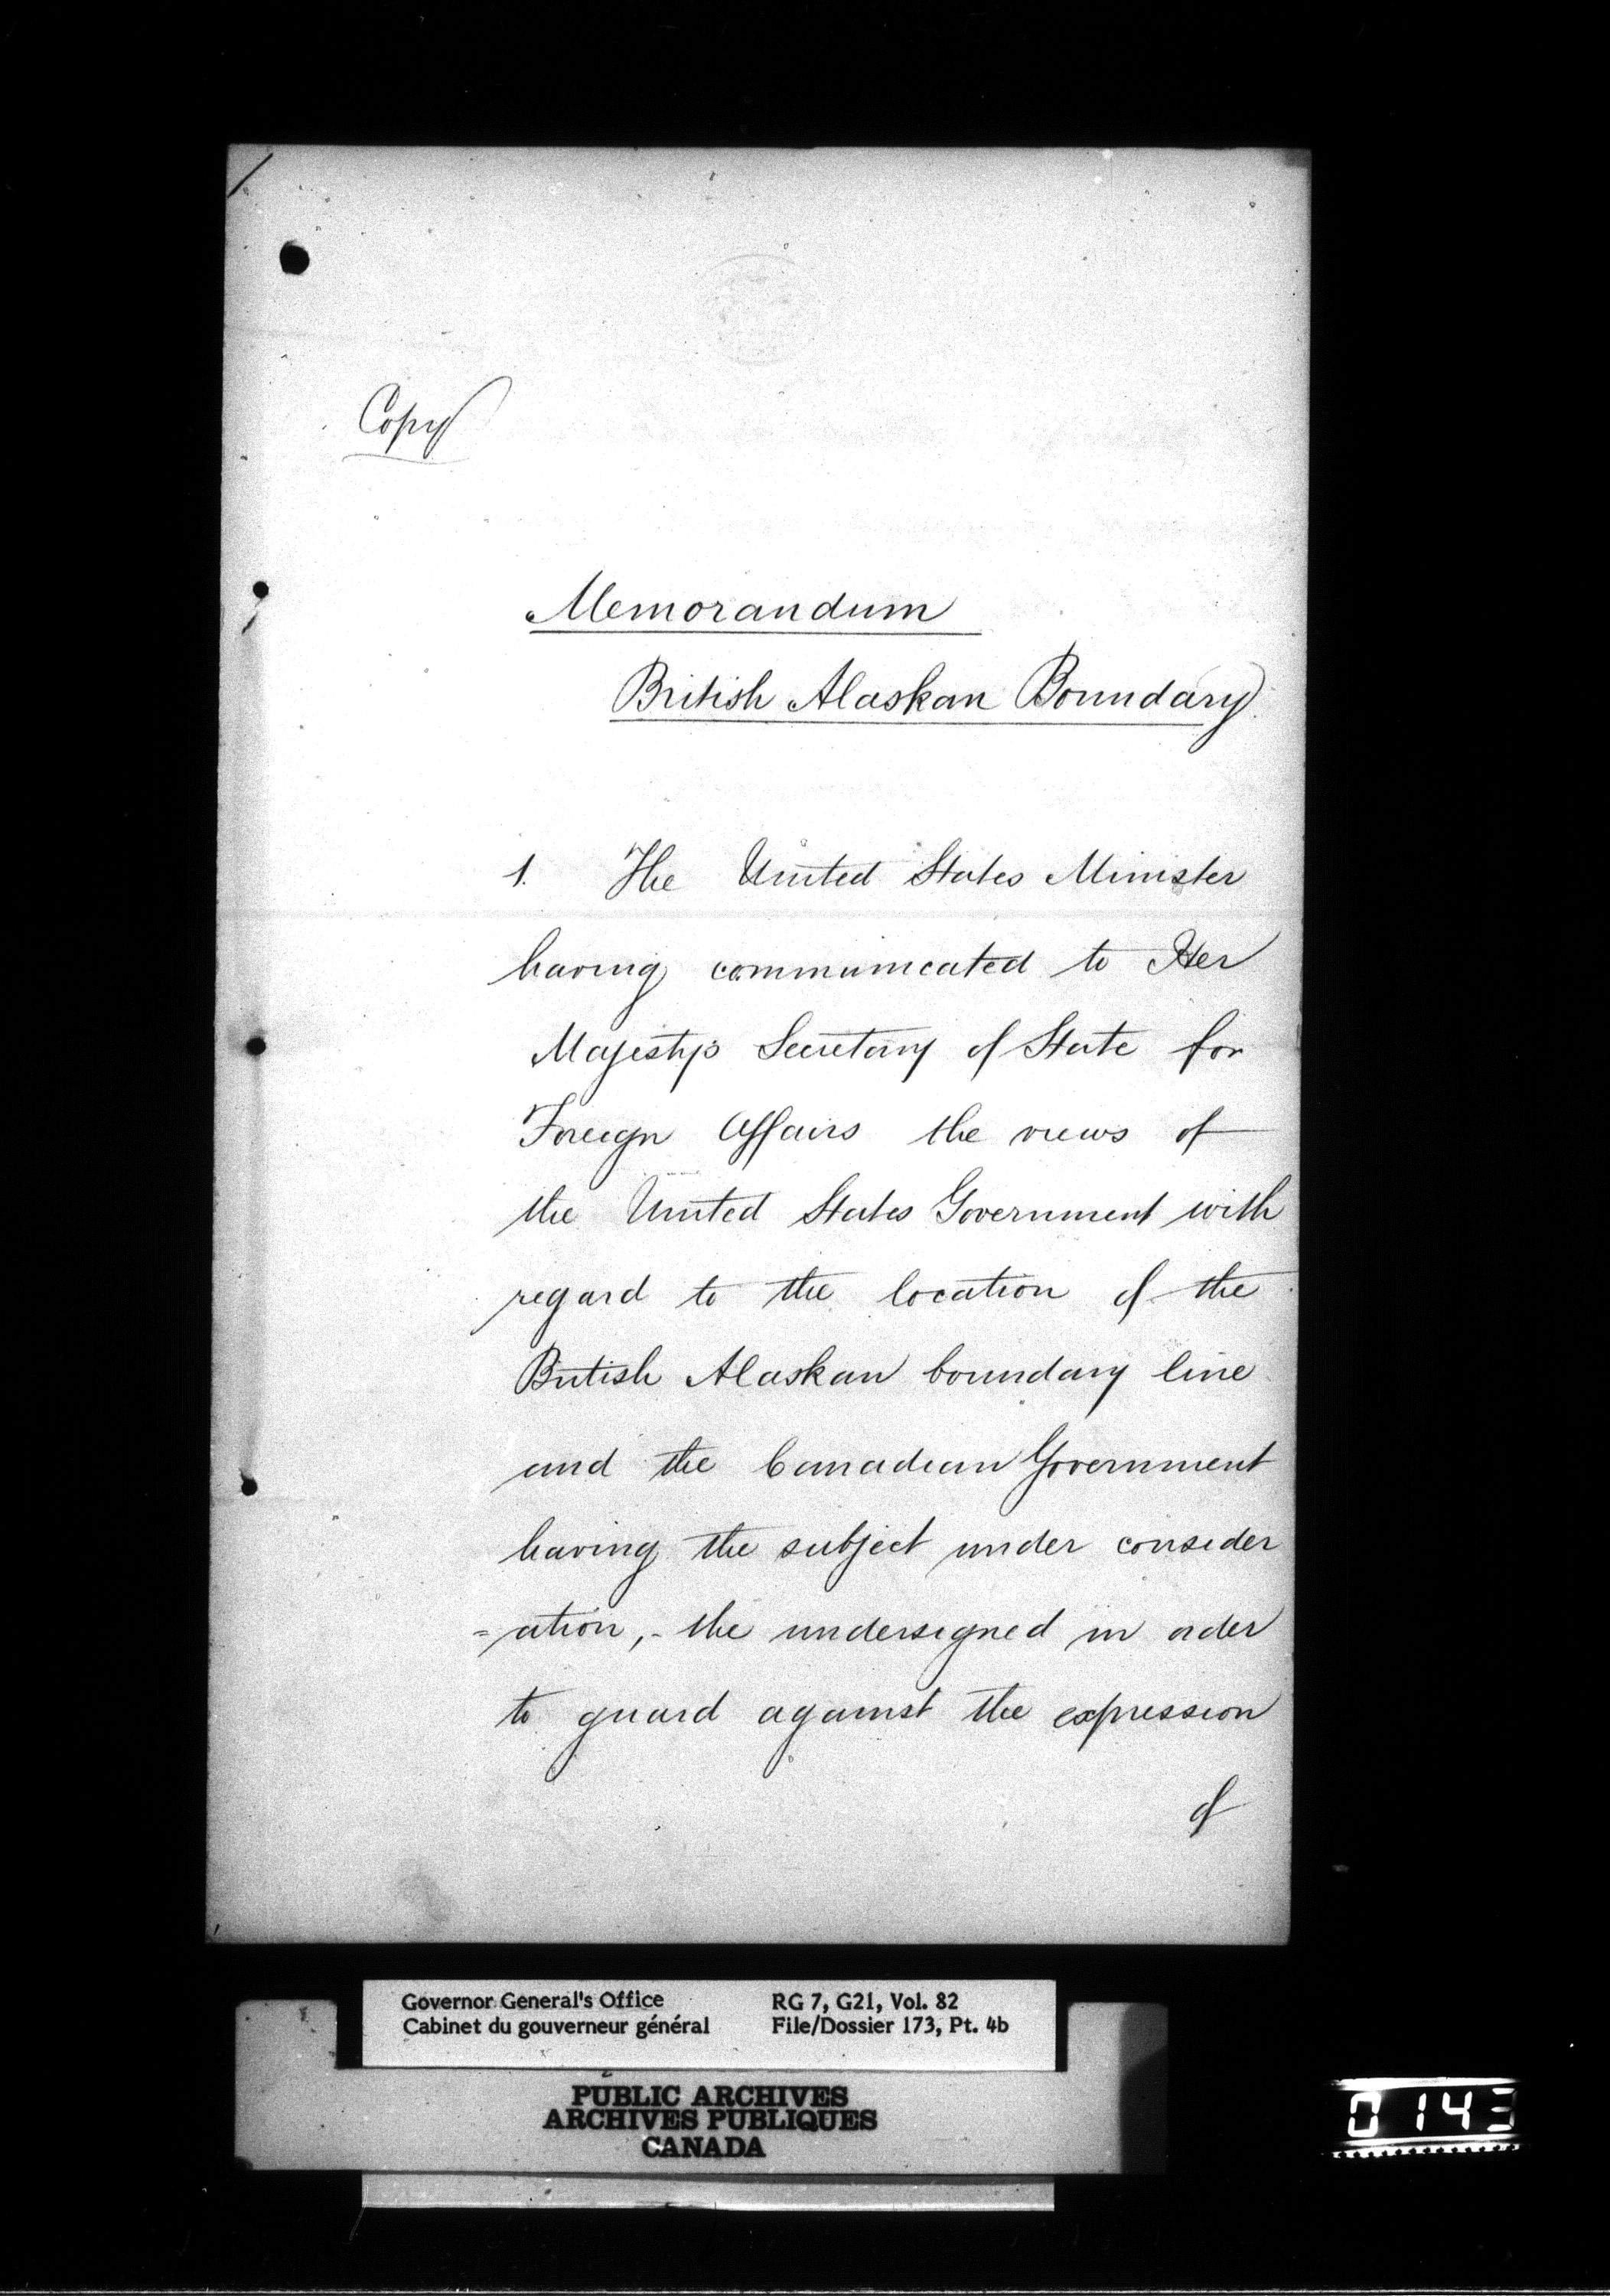 Copy
Memorandum
British Alaskan Boundary.
1. The United States Minister
having communicated to Her
Majesty's Secretary of State for
Foreign Affairs the views of
the United States Government with
regard to the location of the
British Alaskan boundary line
and the Canadian Government
having the subject under consider
=ation,- the undersigned in order
to guard against the expression
of
Governor General's Office RG 7, G21, Vol. 82
Cabinet du gouverneur général File/Dossier 173, Pt. 4b
PUBLIC ARCHIVES
ARCHIVES PUBLIQUES
CANADA
0143